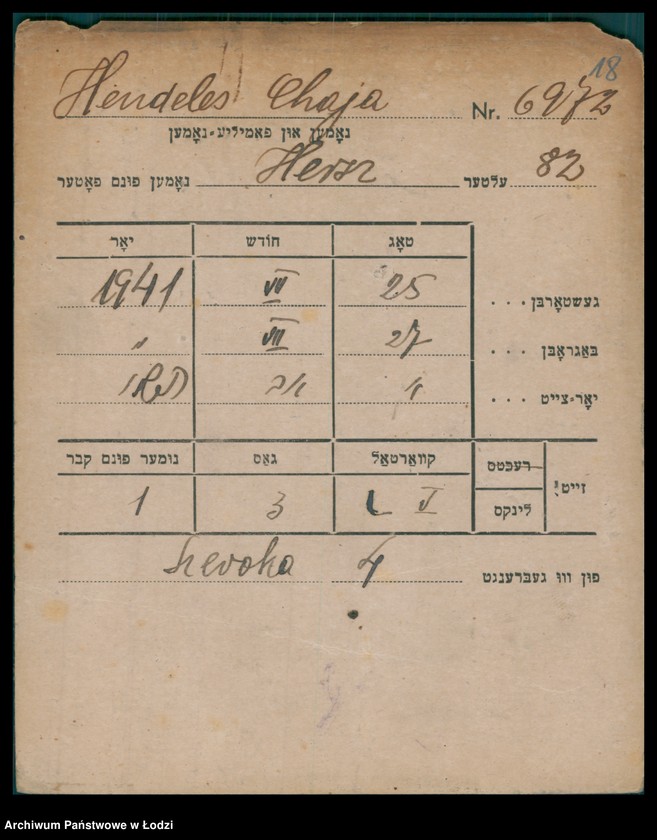 18
Hendeles Chaja Nr. 6972
נאָמען און פאַמיליע-נאָמען
נאָמען פונם פאָטער Hersz עלטער 82
יאָר חודש טאָג
געשטאָרבן ... 25 VII 1941
באַגראָבן ... 27 VII "
יאָר-צייט ... א' אב תש"א
נומער פונם קבר גאַס קוואַרטאַל רעכטס זייט:
1 3 L V לינקס
פון וואו געברענגט 4
Archiwum Państwowe w Łodzi